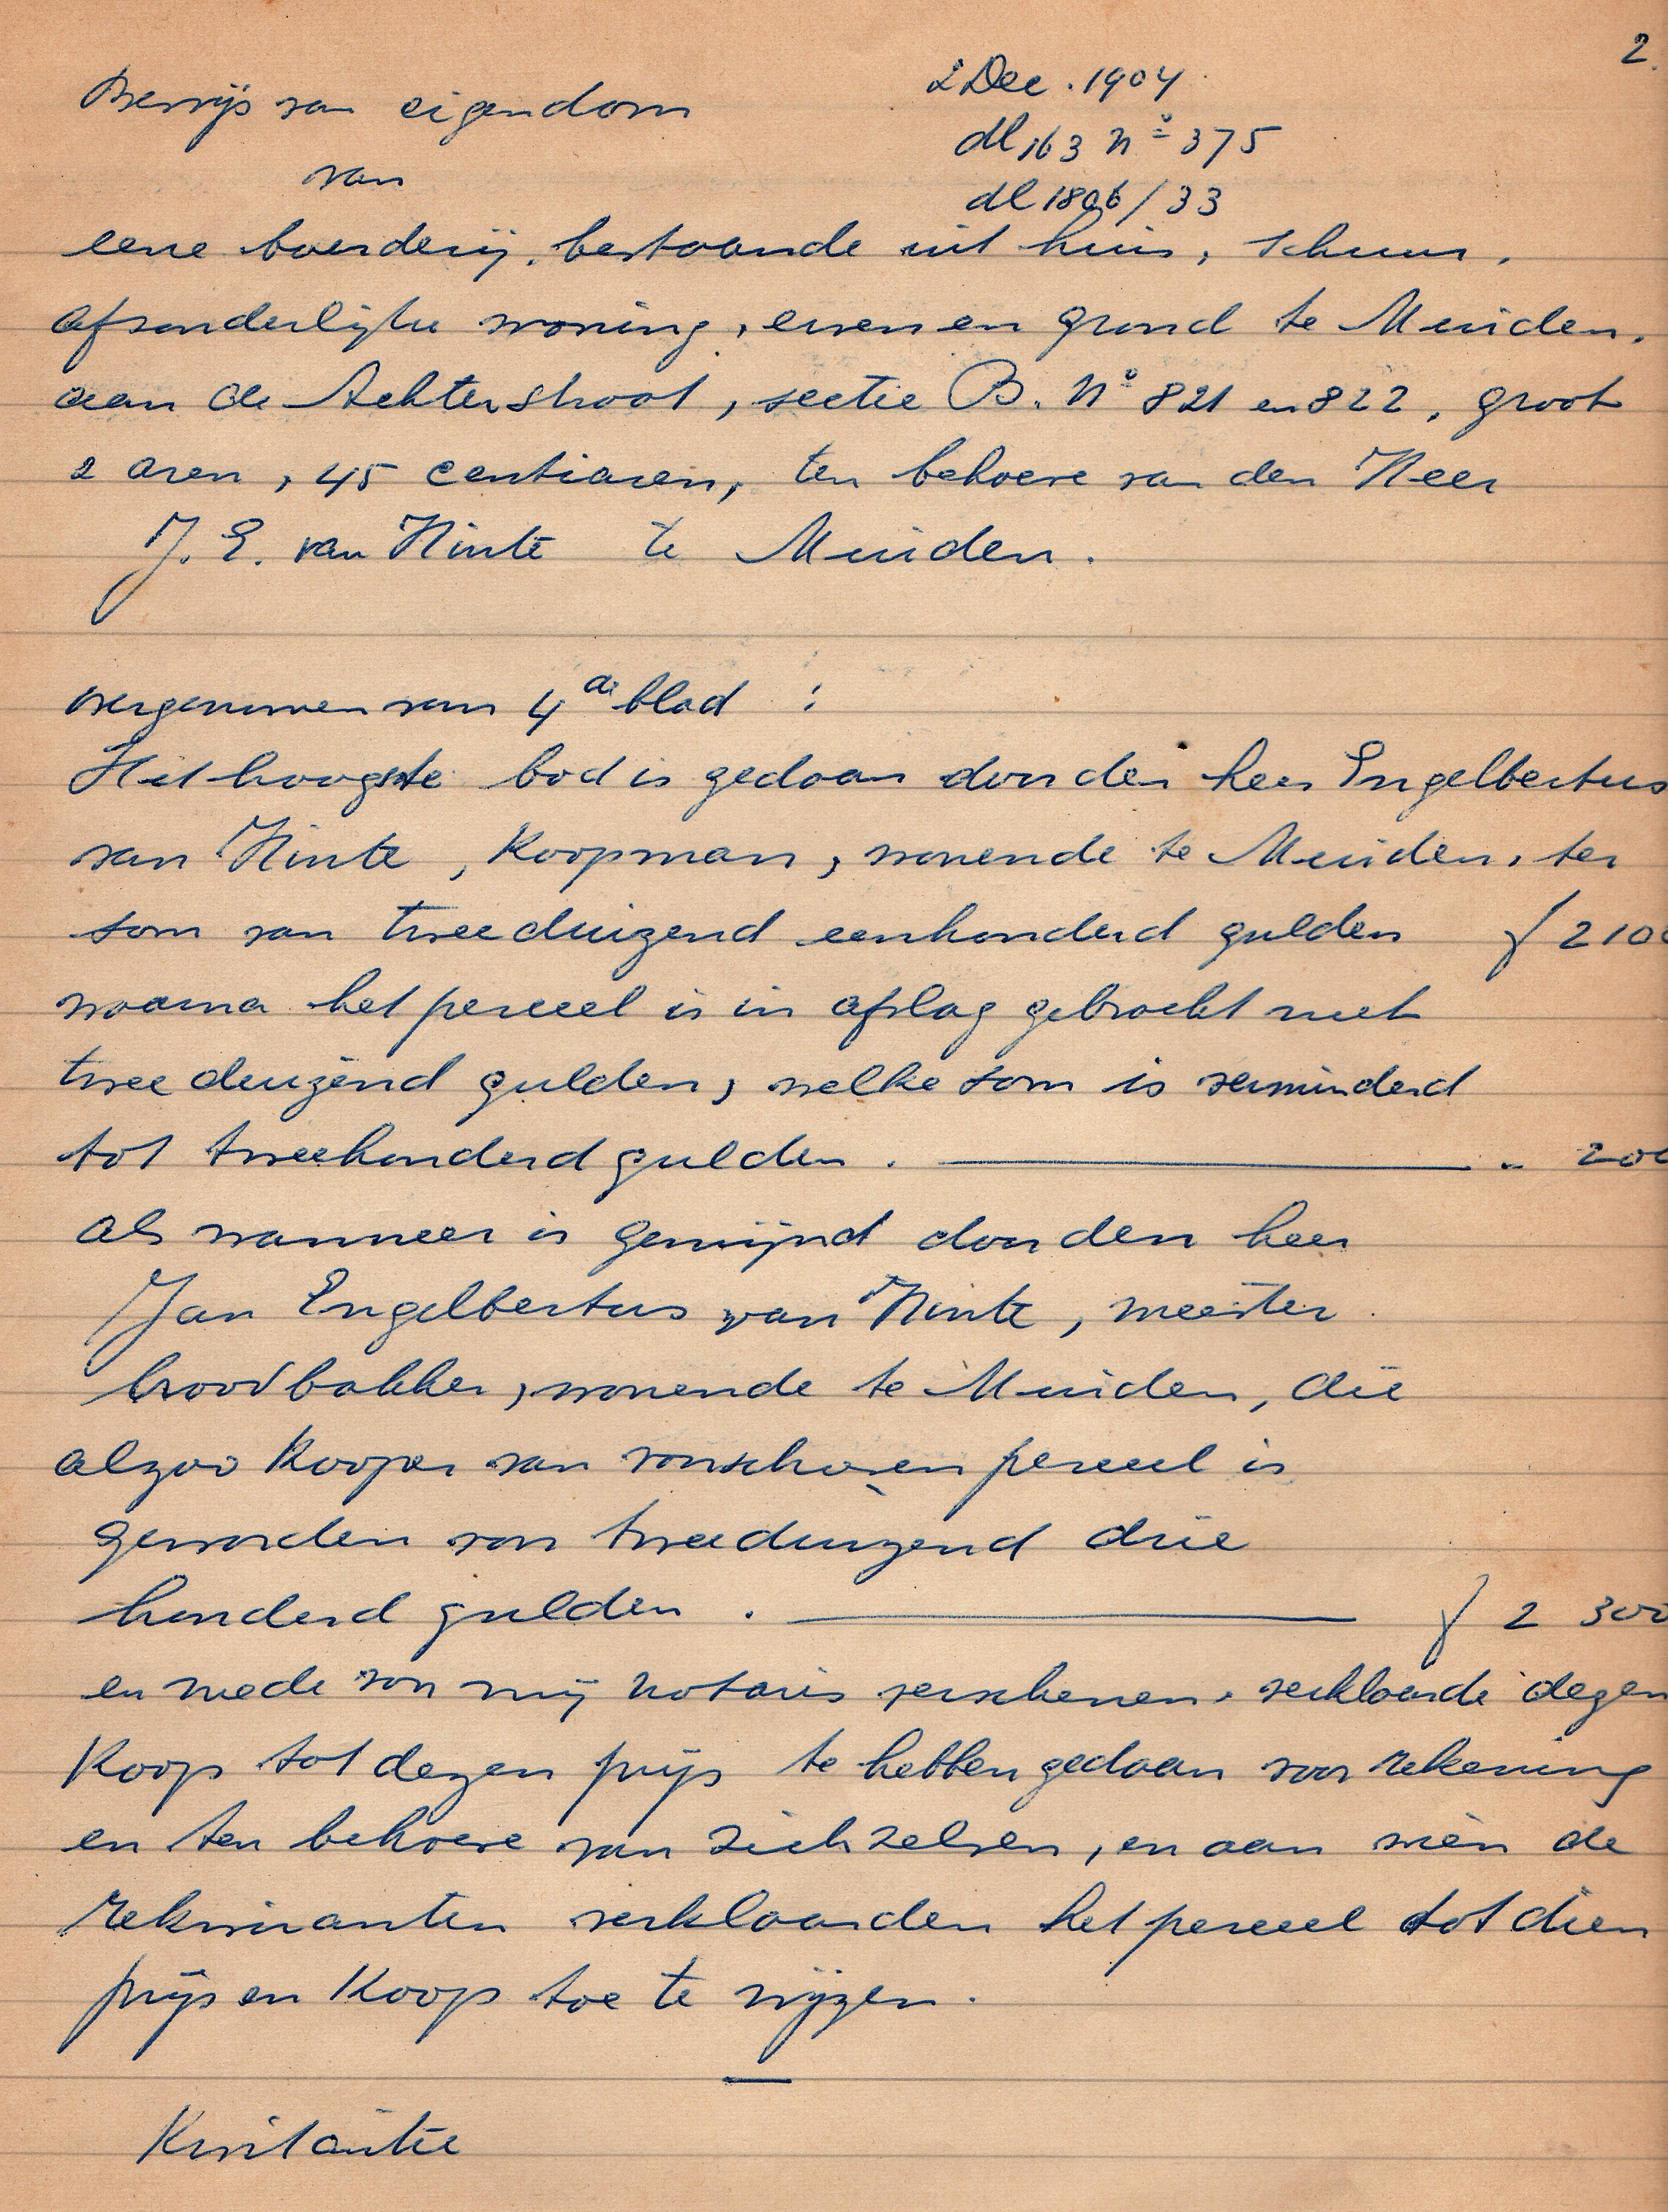 2.
Bewijs van eigendom
2 Dec. 1904
dl 163 nº 375
van
dl 1806/33
eene boerderij, bestaande uit huis, schuur,
afzonderlijke woning, erven en grond te Muiden,
aan de Achterstraat, sectie B. Nº 821 en 822, groot
2 aren, 45 centiaren, ten behoeve van den Heer
J. E. van Hinte te Muiden.
overgenomen van 4de blad :
Het hoogste bod is gedaan door den heer Engelbertus
van Hinte, Koopman, wonende te Muiden, ter
som van tweeduizend eenhonderd gulden f 2100
waarna het perceel is in afslag gebracht met
twee duizend gulden, welke som is verminderd
tot tweehonderd gulden. — „ 200
als wanneer is gemijnd door den heer
Jan Engelbertus van Hinte, meester
broodbakker, wonende te Muiden, die
alzoo Kooper van voorschreven perceel is
geworden voor tweeduizend drie
honderd gulden. — f 2 300
en mede voor mij notaris verschenen, verklaarde dezen
Koop tot dezen prijs te hebben gedaan voor rekening
en ten behoeve van zich zelven, en aan wien de
rekwiranten verklaarden het perceel tot dien
prijs en Koop toe te wijzen.
—
Kwitantie